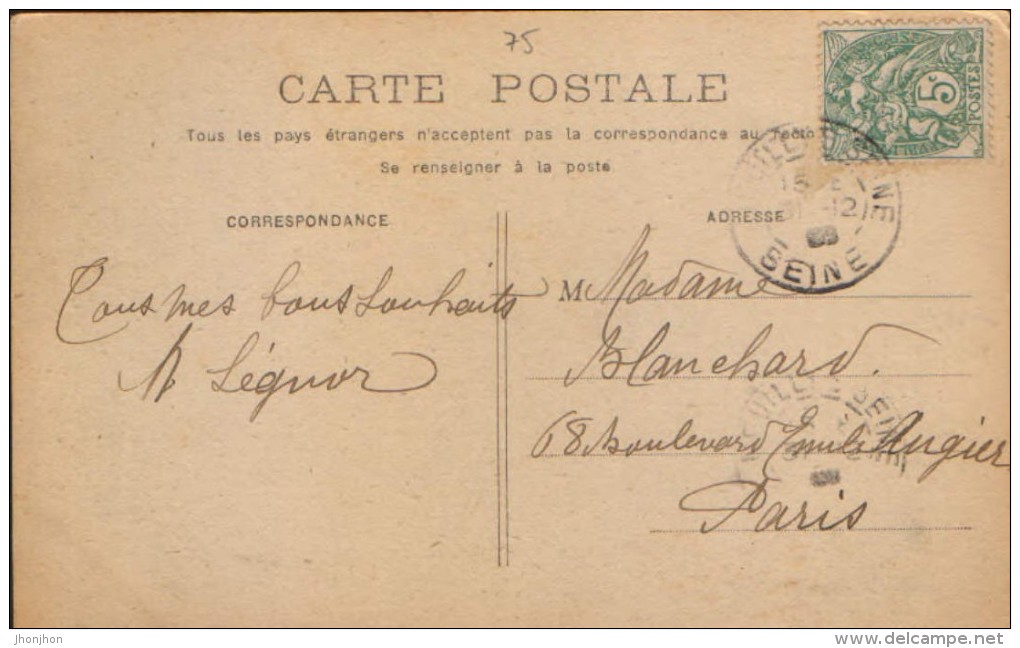 75
CARTE POSTALE
Tous les pays étrangers n'acceptent pas la correspondance au recto
Se renseigner à la poste
CORRESPONDANCE
ADRESSE
5c
POSTES
15
12
SEINE
Tous mes bons souhaits
Légnor
M Madame
Blanchard.
68 Boulevard Emile Augier
Paris
SEINE
jhonjhon
www.delcampe.net